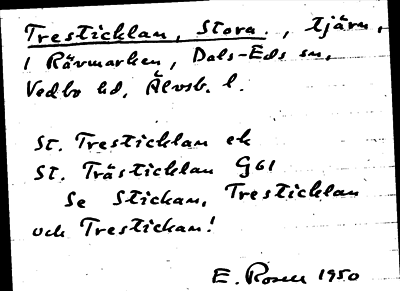 Tresticklan, Stora., tjärn,
i Rävmarken, Dals-Eds sn,
Vedbo hd, Älvsb. l.
St. Tresticklan ek
St. Trästicklan G61
Se Stickan, Tresticklan
och Trestickan!
E. Rosen 1950